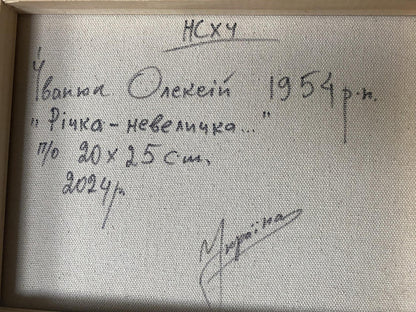 НСХУ
Іванюк Олексій 1954 р.н.
„Річка-невеличка..."
п/о 20х25 см.
2024р.
Україна